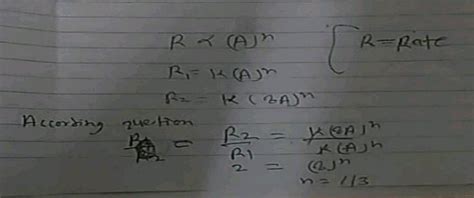 R ∝ (A)^n [ R = Rate
R₁ = K(A)^n
R₂ = K(2A)^n
According question
= R₂/R₁ = K(2A)^n / K(A)^n
2 = (2)^n
n = 1/3